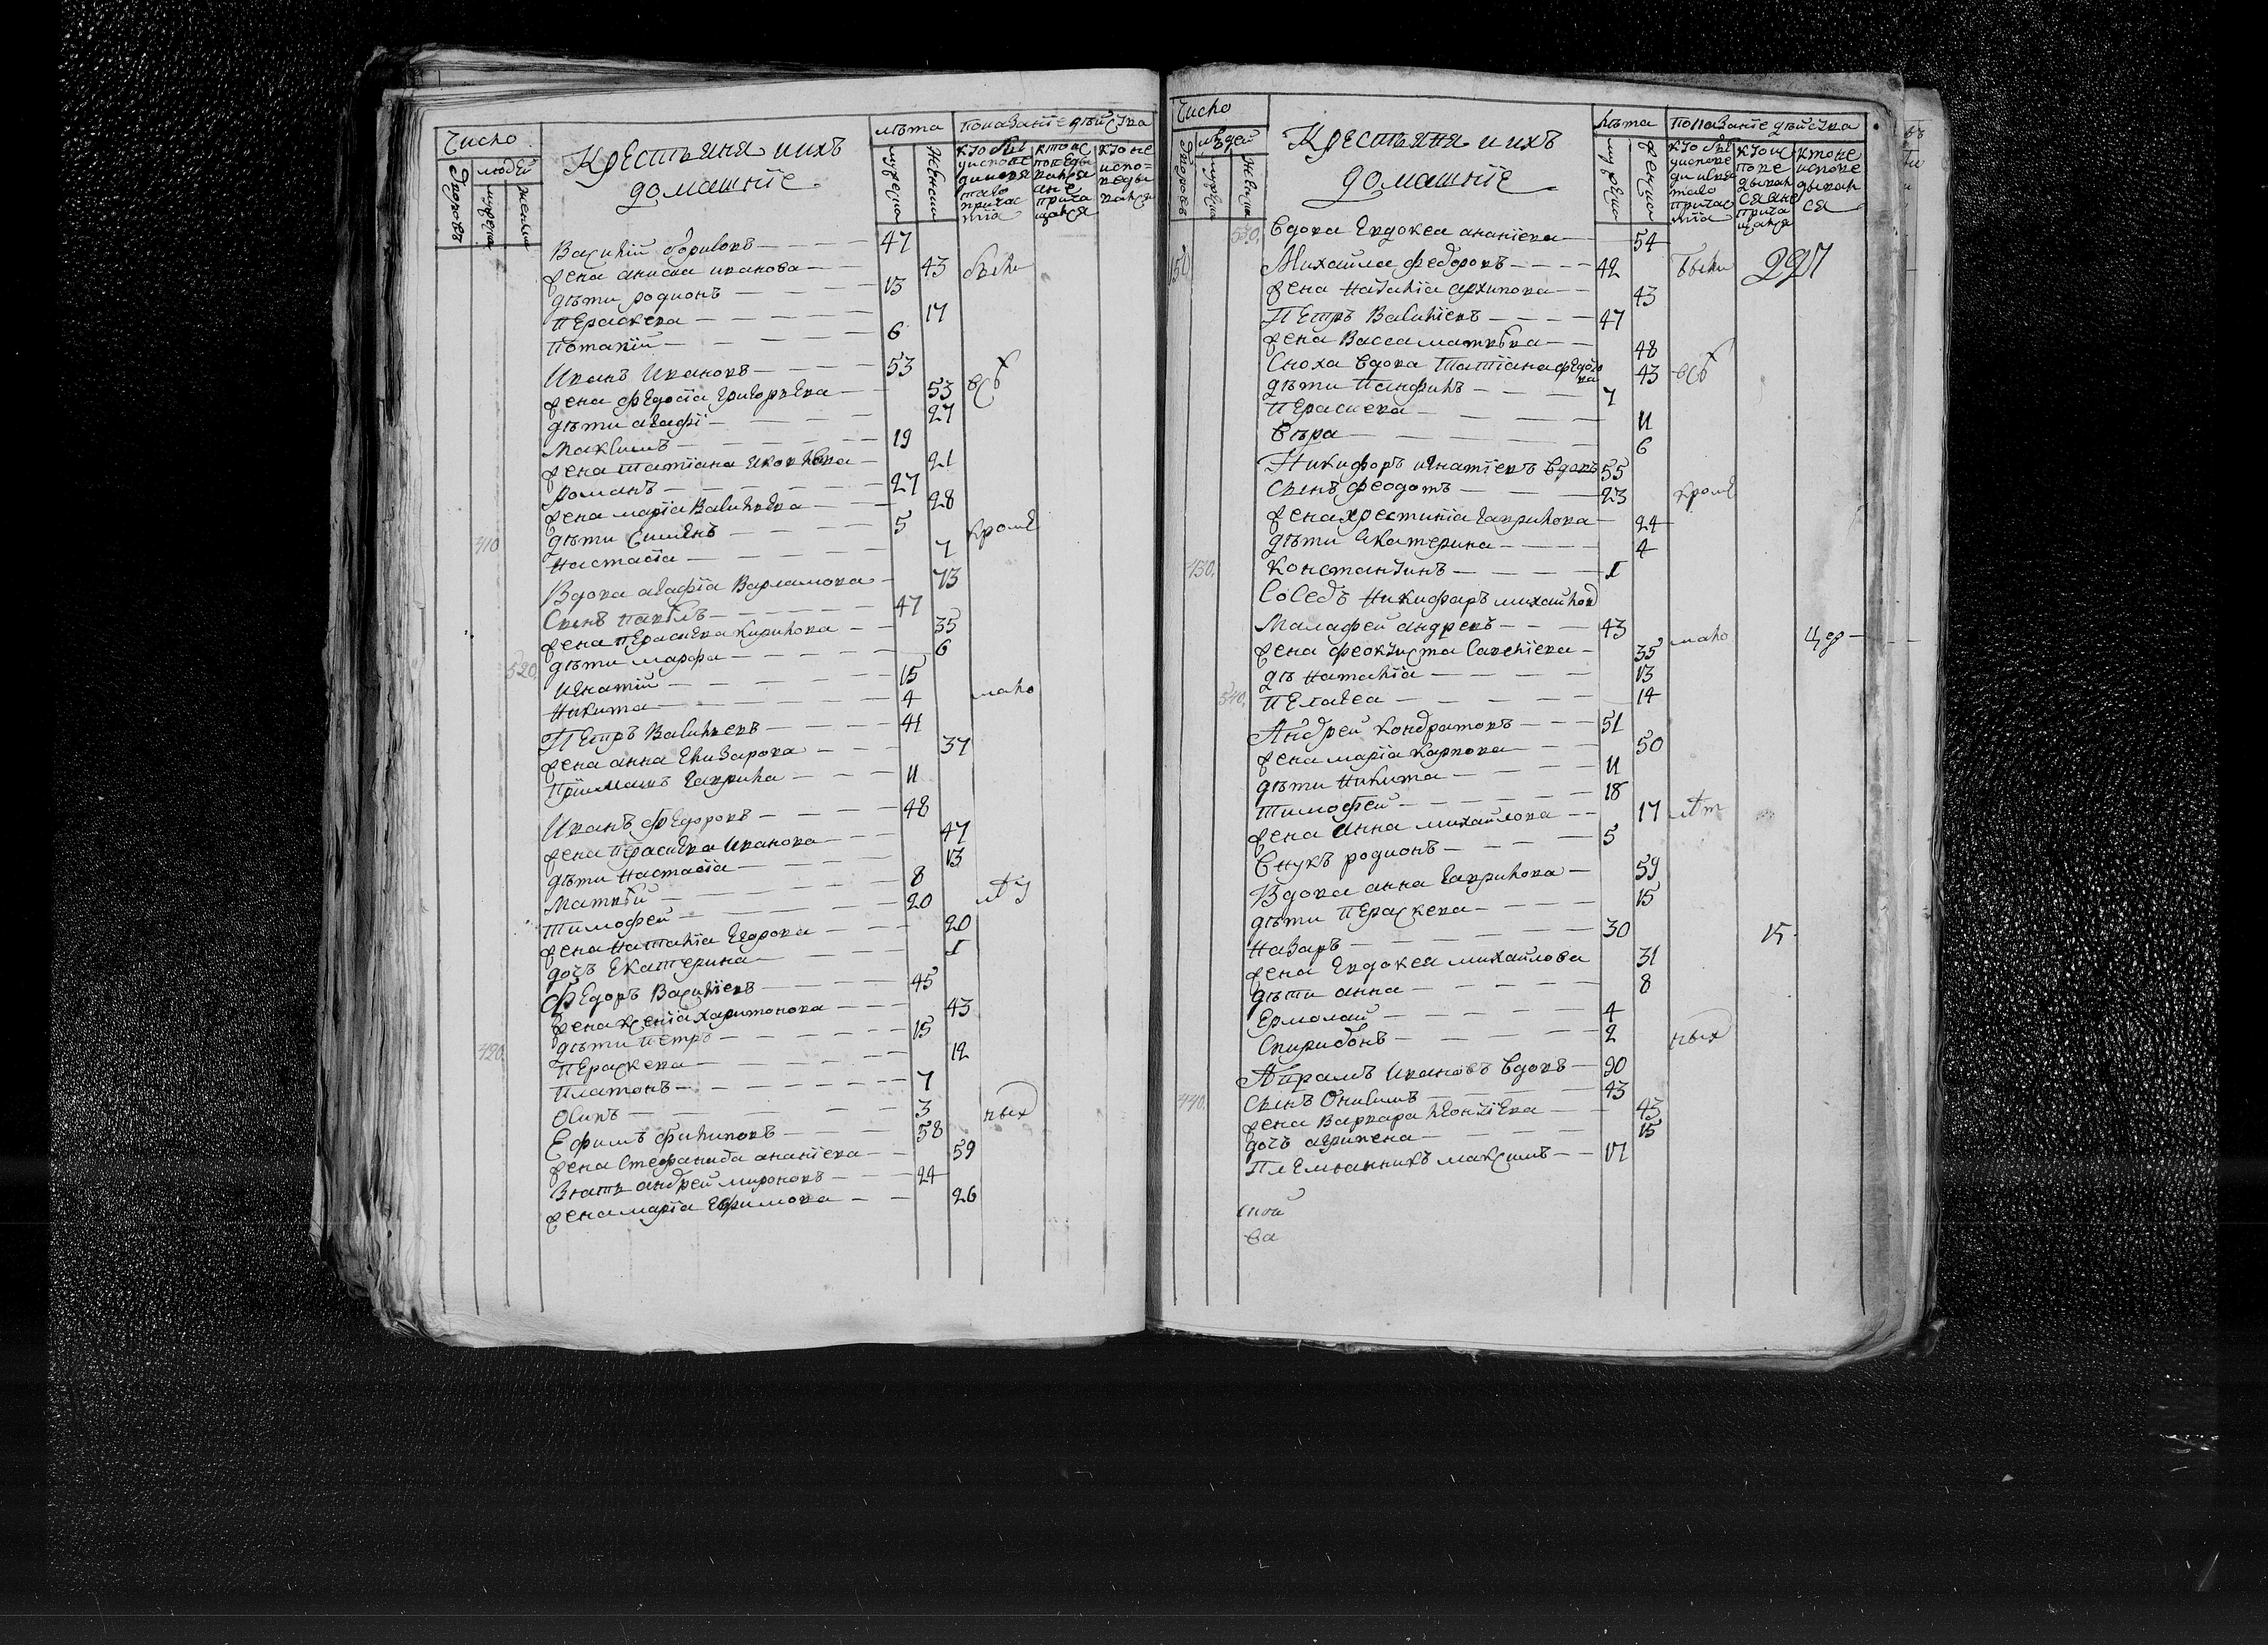 Число
людей
Дворовъ
мужеска
женска
Крестьяня и ихъ
домашніе
лѣта
мужеска
женски
показаніе дѣйства
Василій Борисовъ 47
жена анисиа иванова 43 были
дѣти родионъ 13
Пераскева 17
Потапій 6
Иванъ Ивановъ 53
жена Федосіа Григорьева 53 всѣ
дѣти агафі 27
Максимъ 19
жена татіана Яковлева 21
романъ 27
жена маріа Васильева 28
дѣти Симёнъ 5 кроме
310 настасіа 7
Вдова агафіа Варламова 73
Сынъ павелъ 47
жена пераскева Кирилова 35
520. дѣти марфа 6
Игнатій 15
Никита 4 мало
Петръ Васильевъ 41
жена анна Елизарова 37
Пріимышъ гаврила 11
Иванъ Федоровъ 48
жена Праскева Иванова 47
дѣти настасіа 13
Матвѣй 8
Тимофей 20 лѣт
жена наталіа Егорова 20
дочъ Екатерина 1
Федоръ Васильевъ 45
жена ксеніа харитонова 43
дѣти петръ 15
420. Пераскева 12
Платонъ 7
Осипъ 3 ных
Ефимъ филиповъ 58
жена Стефанида ананіева 59
Зять андрей мироновъ 24
жена маріа Ефимова 26
Число
людей
Дворовъ
мужеска
женска
Крестьяня и ихъ
домашніе
лѣта
мужеска
женска
показаніе дѣйства
530. Вдова Евдокеа ананіева 54
150 Михайла Федоровъ 42 были 297
жена наталіа архипова 43
Петръ Василіевъ 47
жена Васса матвѣва 48
Сноха вдова Татіана Федорова 43 всѣ
дѣти Панфилъ 7
Пераскева 11
Вѣра 6
Никифоръ игнатіевъ вдовъ 55
Сынъ феодотъ 23 кроме
жена хрестиніа гаврилова 24
дѣти Екатерина 4
430. Константинъ 1
Соседъ Никифаръ михайлов
Малафей андревъ 43
жена Феоктиста Савеліева 35 мало Цер
дѣ Наталіа 13
540. Пелагеа 14
Андрей Кондратовъ 51
жена маріа Карпова 50
дѣти Никита 11
Тимофей 18
жена Анна михайлова 17 лѣт
Внукъ родионъ 5
Вдова анна гаврилова 59
дѣти Пераскева 15
Назаръ 30 15.
жена Евдокеа михайлова 31
дѣти анна 8
Ермолай 4
Спиридонъ 2 ных
Абрамъ Ивановъ вдовъ 90
440. Сынъ Онисимъ 43
жена Варвара леонтіева 43
дочъ агрипена 15
Племянникъ максимъ 17